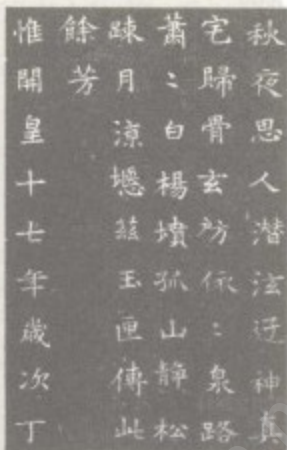 秋夜思人潛泫迁神真
宅歸骨玄房依〻泉路
蕭〻白楊墳孤山靜松
踈月涼瘞茲玉匣傳此
餘芳
惟開皇十七年歲次丁